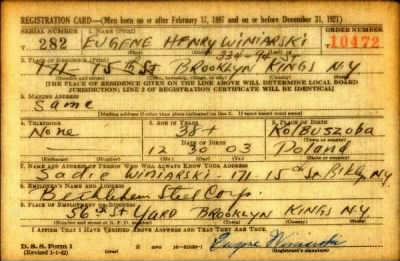 REGISTRATION CARD—(Men born on or after February 17, 1897 and on or before December 31, 1921)
SERIAL NUMBER 1. NAME (Print) ORDER NUMBER
T 282 EUGENE HENRY WINIARSKI 10472
334 9th St
2. PLACE OF RESIDENCE (Print)
171 15th St BROOKLYN KINGS N.Y
[THE PLACE OF RESIDENCE GIVEN ON THE LINE ABOVE WILL DETERMINE LOCAL BOARD
JURISDICTION; LINE 2 OF REGISTRATION CERTIFICATE WILL BE IDENTICAL]
3. MAILING ADDRESS
Same
[Mailing address if other than place indicated on line 2. If same insert word same]
4. TELEPHONE 5. AGE IN YEARS 6. PLACE OF BIRTH
None 38+ KOLBUSZOBA
DATE OF BIRTH
12 30 03 Poland
7. NAME AND ADDRESS OF PERSON WHO WILL ALWAYS KNOW YOUR ADDRESS
Sadie WINIARSKI - 171 15th St. Bklyn N.Y.
8. EMPLOYER'S NAME AND ADDRESS
Bethlehem Steel Corp.
9. PLACE OF EMPLOYMENT OR BUSINESS
56th St YARD BROOKLYN KINGS N.Y
I AFFIRM THAT I HAVE VERIFIED ABOVE ANSWERS AND THAT THEY ARE TRUE.
D. S. S. Form 1
(Revised 1-1-42) Eugene Winiarski